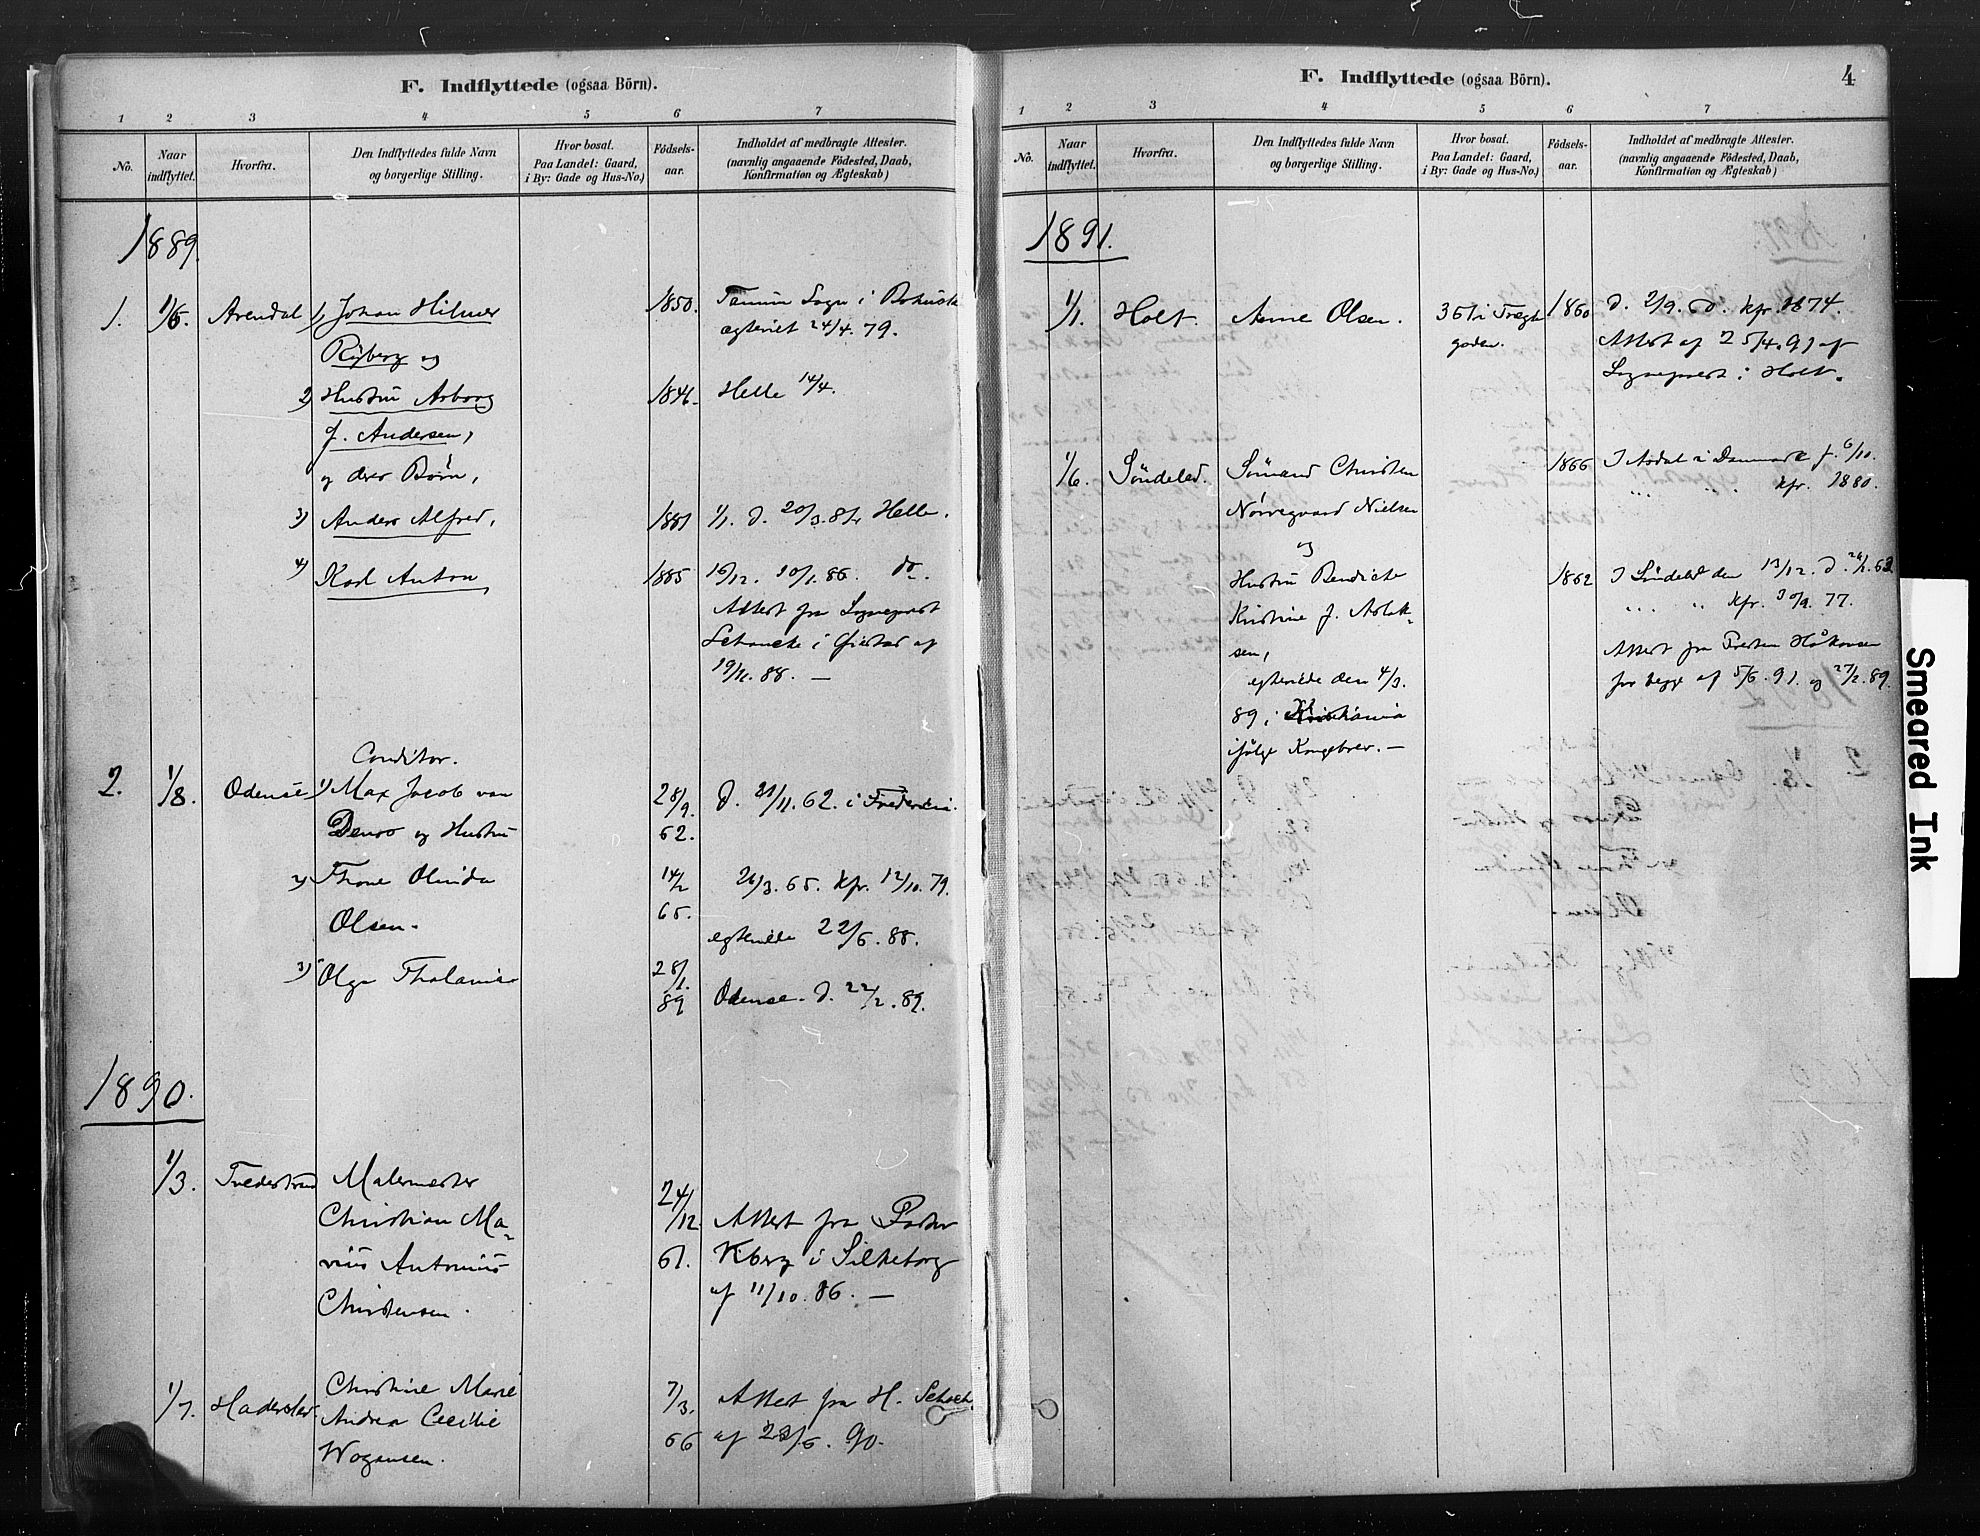 F. Indflyttede (ogsaa Börn).
1 2 3 4 5 6 7
No.
Naar indflyttet.
Hvorfra.
Den Indflyttedes fulde Navn og borgerlige Stilling.
Hvor bosat. Paa Landet: Gaard, i By: Gade og Hus-No.)
Födsels-aar.
Indholdet af medbragte Attester. (navnlig angaaende Födested, Daab, Konfirmation og Ægteskab)
1889.
1. 1/5. Arendal 1) Johan Hilmer 1850.
Ryberg og egteviet 24/4. 79.
2) Hustru Asborg 1846. Helle 14/4.
f. Andersen,
og deres Børn,
3) Anders Alfred, 1881 1/1. d. 20/3. 81, Helle.
4) Karl Anton 1885 16/12. 10/1. 86. do.
Attest fra Sogneprest
i af
19/11. 88. —
Conditor.
2. 1/8. Odense 1) Max Jacob von 28/9 d. 21/11. 62. i Fredericia.
og Hustru 62.
2) Thone Olinda 14/2 26/3. 65. kfr. 12/10. 79.
Olsen. 65.
egteviede 22/5. 88.
3) Olga Thalania 28/1
89 Odense. d. 22/2. 89.
1890.
1/3. Tvedestrand Malermester
24/12
Christian Ma- Attest fra Pastor
rius Antonius 61. Kiberg i Silkeborg
Christensen. af 11/10. 86. —
1/7. Haderslev. Christine Marie 7/3. Attest fra H.
Andrea Cecilie
Wogensen. 66 af 23/6. 90.
F. Indflyttede (ogsaa Börn). 4
1 2 3 4 5 6 7
No.
Naar indflyttet.
Hvorfra.
Den Indflyttedes fulde Navn og borgerlige Stilling.
Hvor bosat. Paa Landet: Gaard, i By: Gade og Hus-No.)
Födsels-aar.
Indholdet af medbragte Attester. (navnlig angaaende Födested, Daab, Konfirmation og Ægteskab)
1891.
1/1. Holt. Anne Olsen. 351 i Tregt- 1860 d. 2/9. 60. kfr. 1874.
gaden. Attest af 25/4. 91 af
Sogneprest i Holt.
1/6. Söndeled. Sömand Christen 1866 I Asdal i Danmark f. 6/10.
Nörregaard Nielsen kfr. 1880.
og
Hustru Bendicte 1862 I Söndeled den 13/12. d. 26/2. 63.
Kristine f. Aslak- kfr. 30/9. 77.
sen, Attest fra Presten Håkonsen
egteviede den 4/3. for begge af 5/6. 91. og 27/2. 89.
89, i Kristiania
ifølge Kongebrev. —
Smeared Ink